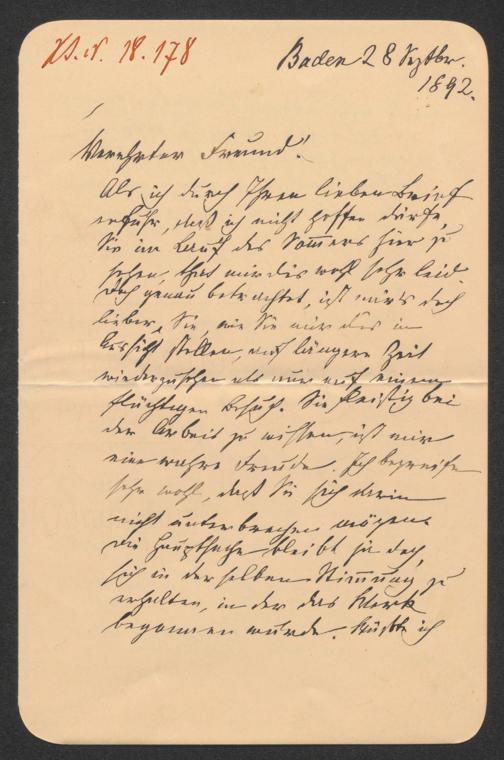 H.N. 18.178
Baden 28 Septbr.
1892.
Verehrter Freund!
Als ich durch Ihren lieben Brief
erfuhr, daß ich nicht hoffen dürfe,
Sie im Lauf des Sommers hier zu
sehen, that mir dies wohl sehr leid.
Doch genau betrachtet, ist mir's doch
lieber, Sie, wie Sie mir dies in
Aussicht stellen, auf längere Zeit
wiederzusehen als nur auf einen
flüchtigen Besuch. Sie fleißig bei
der Arbeit zu wissen, ist mir
eine wahre Freude. Ich begreife
sehr wohl, daß Sie sich darin
nicht unterbrechen mögen.
Die Hauptsache bleibt ja doch,
sich in derselben Stimmung zu
erhalten, in der das Werk
begonnen wurde. Müßte ich